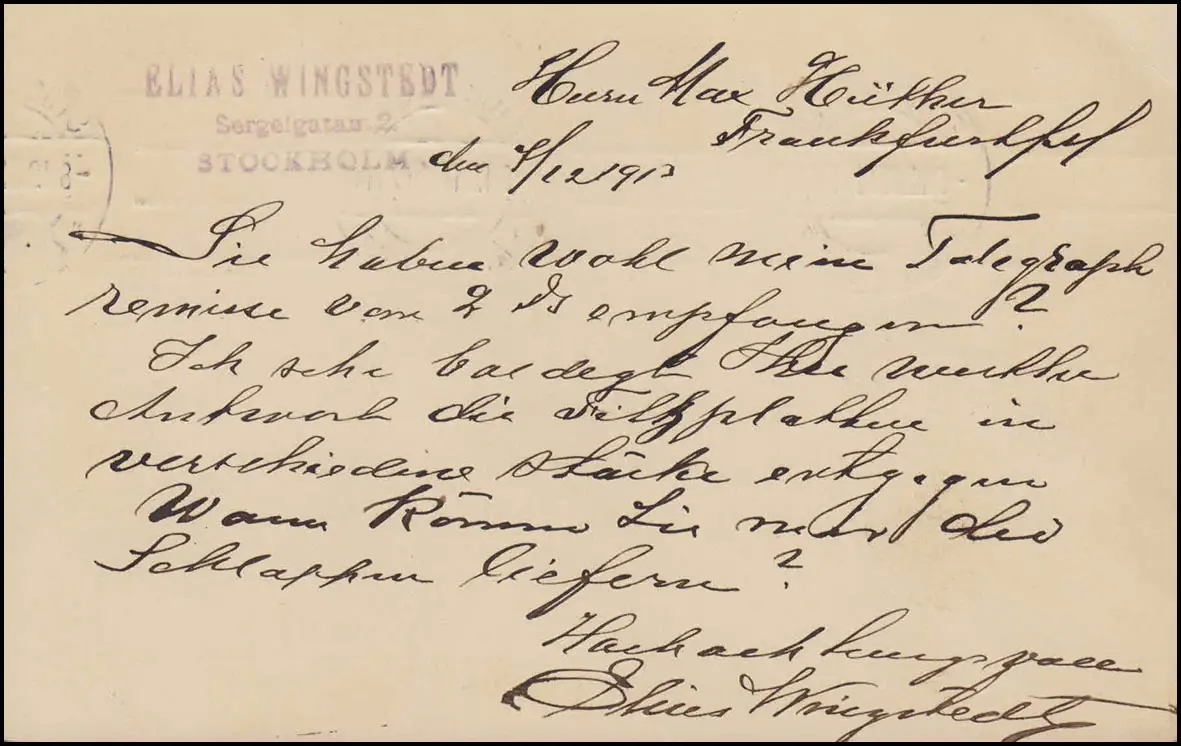 ELIAS WINGSTEDT
Sergelgatan 2
STOCKHOLM
Herrn Max Hüther
Frankfurt
den 4/12 1913
Sie haben wohl mein Telegraph
remisse vom 2 Ds empfangen?
Ich sehe baldegt Ihre werthe
Antwort die Filtzplatten in
verschiedene stärke entgegen
Wann können Sie mir die
Schlappen liefern?
Hochachtungsvoll
Elias Wingstedt